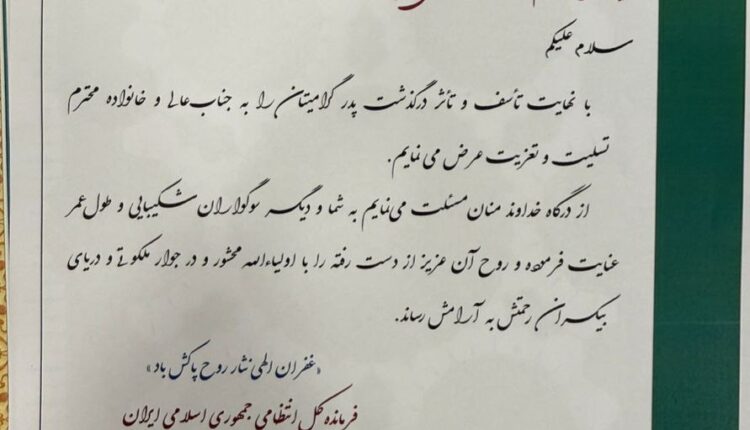 سلام علیکم
با نهایت تأسف و تأثر درگذشت پدر گرامیتان را به جناب‌عالی و خانواده محترم
تسلیت و تعزیت عرض می نمایم.
از درگاه خداوند منان مسئلت می‌نمایم به شما و دیگر سوگواران شکیبایی و طول‌عمر
عنایت فرموده و روح آن عزیز از دست رفته را با اولیاءالله محشور و در جوار ملکوتی و دریای
بیکران رحمتش به آرامش رساند.
«غفران الهی نثار روح پاکش باد»
فرمانده کل انتظامی جمهوری اسلامی ایران